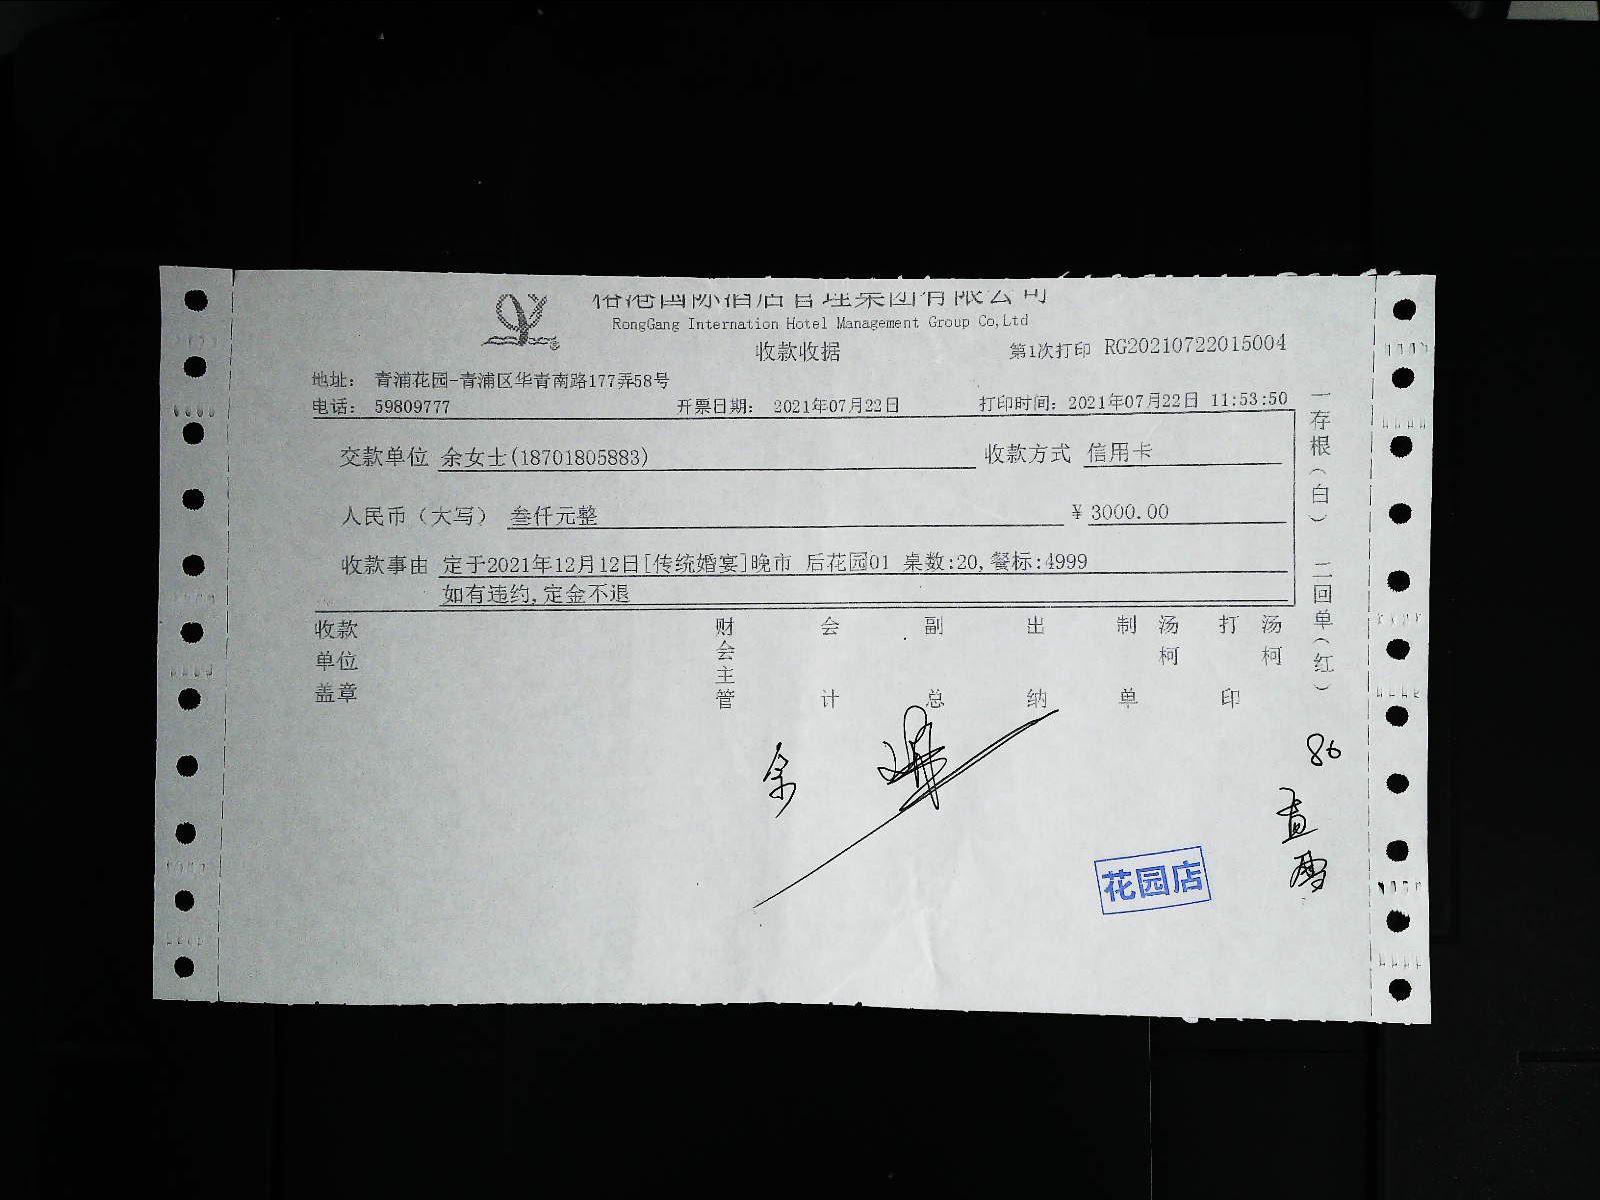 国际酒店管理集团有限公司
RongGang Internation Hotel Management Group Co,Ltd
收款收据
第1次打印 RG20210722015004
地址： 青浦花园-青浦区华青南路177弄58号
电话： 59809777 开票日期： 2021年07月22日 打印时间：2021年07月22日 11:53:50
交款单位 余女士(18701805883) 收款方式 信用卡
人民币（大写） 叁仟元整 ￥3000.00
收款事由 定于2021年12月12日[传统婚宴]晚市 后花园01 桌数:20,餐标:4999
如有违约,定金不退
收款单位盖章 财会主管 会计 副总 出纳 制单 汤柯 打印 汤柯
一存根（白） 二回单（红）
余
86
花园店